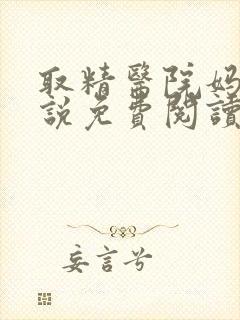 取精醫院妈
説免費閱讀
妄言兮